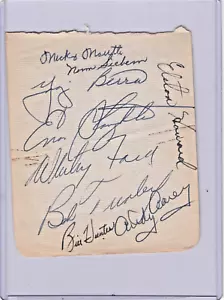 Mickey Mantle
Norm Siebern
Yogi Berra
Elston Howard
Enos Slaughter
Whitey Ford
Bob Turley
Bill Hunter
Andy Carey